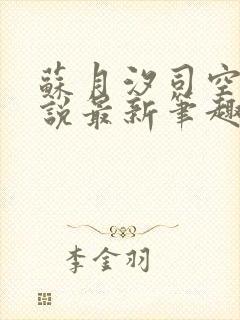 蘇月汐司空
說最新筆趣
李金羽